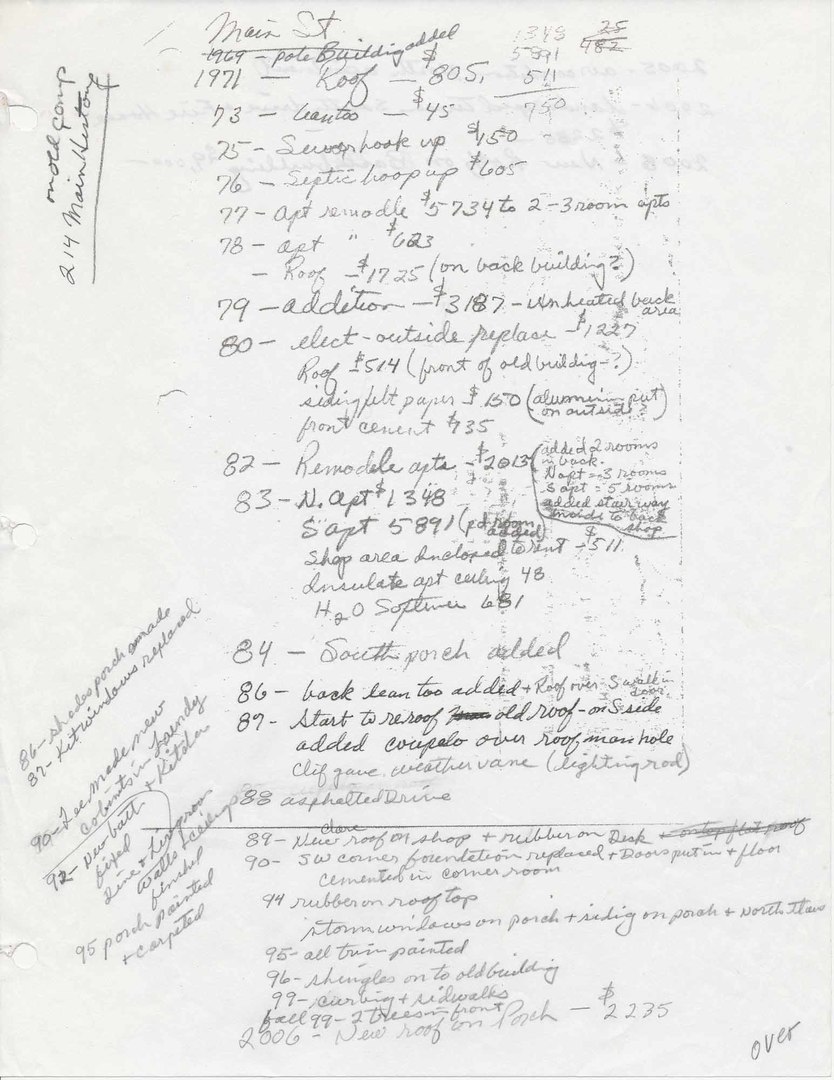 Main St
1969 - pole Building added
1348 25
5891 482
511
750
1971 - Roof - $805.
73 - leantoo - $45
75 - Sewer hook up $150
76 - Septic hoop up $605
77 - Apt remodle $5734 to 2-3 room apts
78 - apt " $623
- Roof - $1725 (on back building?)
79 - addition - $3187 - Unheated back area
80 - elect - outside replase - $1227
Roof - $514 (front of old building-?)
siding felt paper $150 (aluminin put on outside?)
front cement $735
82 - Remodele apts - $2013
(added 2 rooms
in back.
N apt = 3 rooms
S apt = 5 rooms
added stairway
inside to back
shop
83 - N. Apt $1348
S apt 5891 (pd room added)
Shop area Inclosed to rent - $511
Insulate apt ceiling 48
H2O Softner 681
84 - South porch added
86 - back lean too added + Roof over S walk in door
87 - Start to reroof old roof - on S side
added coupelo over roof man hole
Clif gave weather vane (lighting rod)
88 asphalted Drive
89 - New roof on shop + rubber on Desk + on top flat roof
90 - SW corner foundation replaced + Doors put in + floor
cemented in corner room
94 rubber on roof top
storm windows on porch + sidig on porch + North
95 - all trim painted
96 - shingles on to old building
99 - curbig + sidwalks
fall 99 - 2 trees in front
2006 - New roof on Porch - $2235
over
on old comp
214 Main History
86 - shades porch made
87 - Kit windows replaced
90 - Lee made new
cabints in laundy
92 - New bath + Kitchen
fixed
Dine + Liv prom
walls + ceilings
finished
95 porch painted
+ carpeted